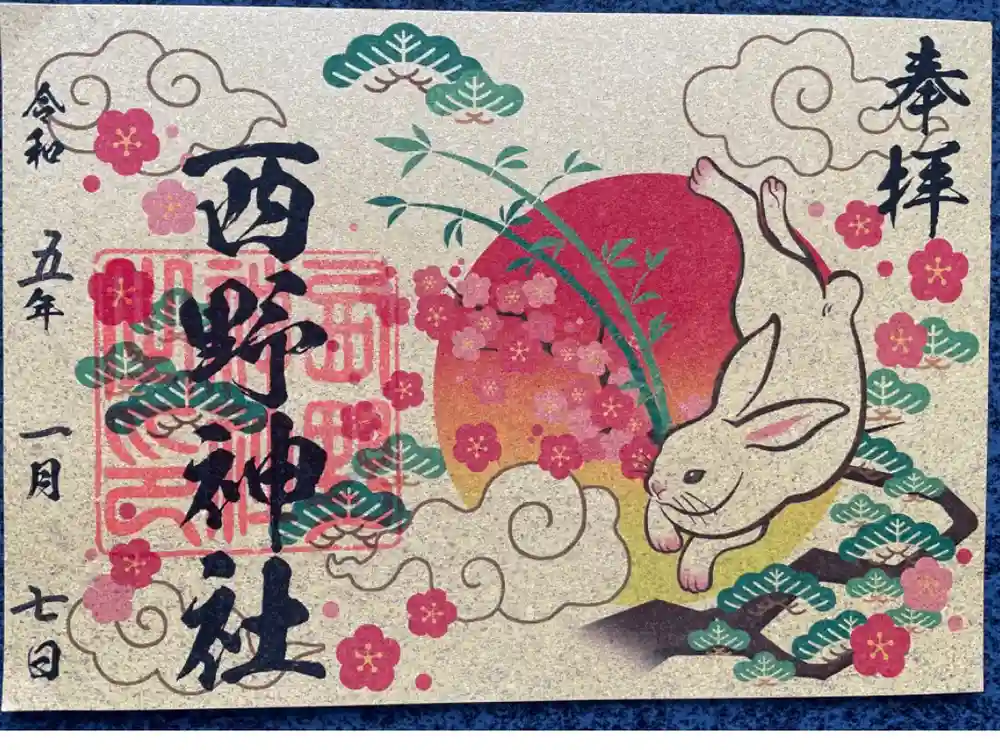 奉拝
西野神社
令和五年一月七日